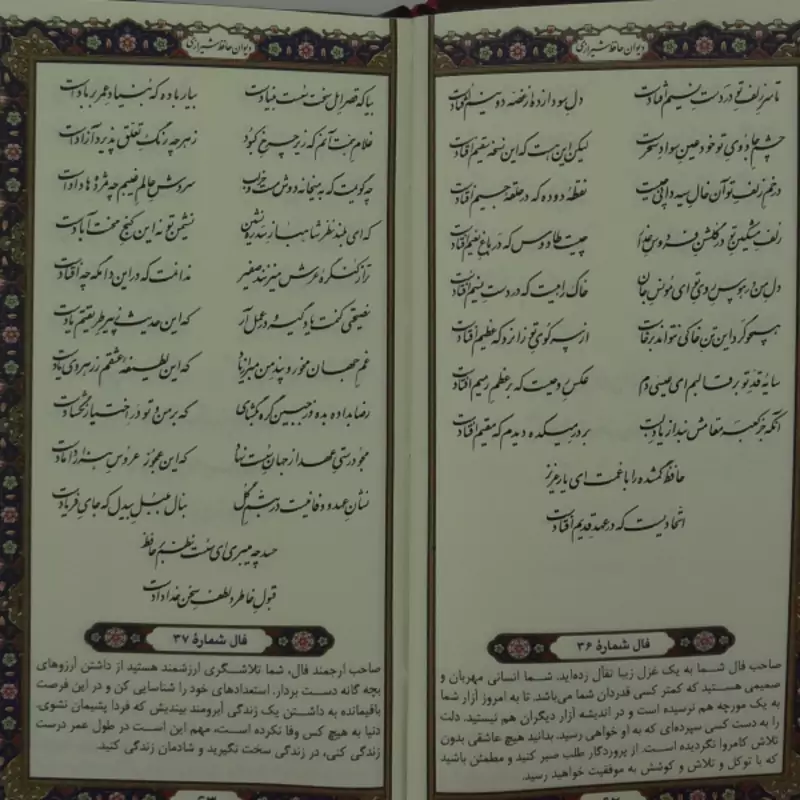 دیوان حافظ شیرازی
تا سر زلف تو در دست نسیم افتادست دل سودازده از غصه دو نیم افتادست
چشم جادوی تو خود عین سواد سحرست لیکن این هست که این نسخه سقیم افتادست
در خم زلف تو آن خال سیه دانی چیست نقطه دوده که در حلقه جیم افتادست
زلف مشکین تو در گلشن فردوس عذار چیست طاووس که در باغ نعیم افتادست
دل من در هوس روی تو ای مونس جان خاک راهیست که در دست نسیم افتادست
همچو گرد این تن خاکی نتواند برخاست از سر کوی تو زانرو که عظیم افتادست
سایه قد تو بر قالبم ای عیسی دم عکس روحیست که بر عظم رمیم افتادست
آنکه جز کعبه مقامش نبد از یاد لبت بر در میکده دیدم که مقیم افتادست
حافظ گمشده را با غمت ای یار عزیز
اتحادیست که در عهد قدیم افتادست
فال شمارهٔ ۳۶
صاحب فال شما به یک غزل زیبا تفأل زده‌اید. شما انسانی مهربان و
صمیمی هستید که کمتر کسی قدردان شما می‌باشد. تا به امروز آزار شما
به یک مورچه هم نرسیده است و در اندیشه آزار دیگران هم نیستید. دلت
را به دست کسی سپرده‌ای که به او خواهی رسید. بدانید هیچ عاشقی بدون
تلاش کامروا نگردیده است. از پروردگار طلب صبر کنید و مطمئن باشید
که با توکل و تلاش و کوشش به موفقیت خواهید رسید.
دیوان حافظ شیرازی
بیا که قصر امل سخت سست بنیادست بیار باده که بنیاد عمر بر بادست
غلام همت آنم که زیر چرخ کبود ز هر چه رنگ تعلق پذیرد آزادست
چه گویمت که به میخانه دوش مست و خراب سروش عالم غیبم چه مژده‌ها دادست
که ای بلند نظر شاهباز سدره نشین نشیمن تو نه این کنج محنت آبادست
ترا ز کنگره عرش میزنند صفیر ندانمت که در این دامگه چه افتادست
نصیحتی کنمت یاد گیر و در عمل آر که این حدیث ز پیر طریقتم یادست
غم جهان مخور و پند من مبر از یاد که این لطیفه عشقم ز رهروی یادست
رضا بداده بده وز جبین گره بگشای که بر من و تو در اختیار نگشادست
مجو درستی عهد از جهان سست نهاد که این عجوز عروس هزار دامادست
نشان عهد و وفا نیست در تبسم گل بنال بلبل بیدل که جای فریادست
حسد چه میبری ای سست نظم بر حافظ
قبول خاطر و لطف سخن خدادادست
فال شمارهٔ ۳۷
صاحب ارجمند فال، شما تلاشگری ارزشمند هستید از داشتن آرزوهای
بچه گانه دست بردار. استعدادهای خود را شناسایی کن و در این فرصت
باقیمانده به داشتن یک زندگی آبرومند بیندیش که فردا پشیمان نشوی.
دنیا به هیچ کس وفا نکرده است، مهم این است در طول عمر درست
زندگی کنی، در زندگی سخت نگیرید و شادمان زندگی کنید.